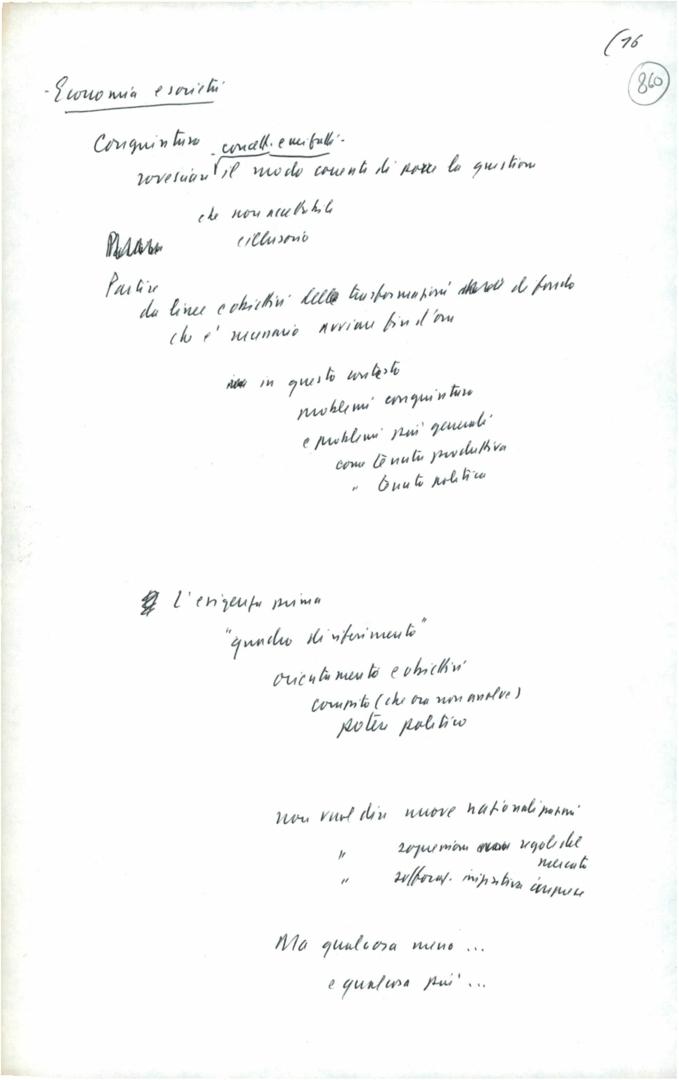 (16
860
- Economia e società
Congiuntura - concell. e
rovesciare il modo corrente di porre la question
che non accettabile
e illusorio
Partire
da linee e obiettivi delle trasformazioni di fondo
che è necessario avviare fin d'ora
in questo contesto
problemi congiuntura
e problemi più generali
come tenuta produttiva
" tenuta politica
L'esigenza prima
"quadro di riferimento"
orientamento e obiettivi
compito (che ora non assolve)
potere politico
non vuol dire nuove nazionalizzazioni
" soppressione regole del
mercato
" soffocaz. iniziativa imprese
Ma qualcosa meno ...
e qualcosa più ...